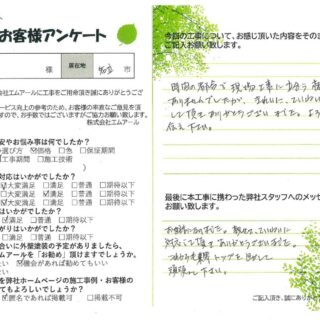 お客様アンケート
様
居在地
市
エムアールに工事をご用命頂き誠にありがとうござ
ービス向上の参考のため、お客様の率直なご意見を頂
ますので、お手数ではございますがご協力お願い致します。
株式会社エムアール
安やお悩み事は何でしたか?
の選び方 ☑価格 □色 □保証期間
工事期間 □施工技術
対応はいかがでしたか?
☑大変満足 □満足 □普通 □期待以下
□大変満足 ☑満足 □普通 □期待以下
☑大変満足 □満足 □普通 □期待以下
はいかがでしたか?
満足 □普通 □期待以下
がりはいかがでしたか?
満足 □普通 □期待以下
合いに外壁塗装の予定がありましたら、
エムアールを「お勧め」頂けますでしょうか?
い ☑機会があれば勧めてもいい
ない
を弊社ホームページの施工事例・お客様の
てもよろしいでしょうか?
☑匿名であれば掲載可 □掲載不可
今回の工事について、お感じ頂いた内容をそのま
ご記入お願い致します。
時間の都合で現場工事に
ありませんでしたが、きれいに、ていねい
して頂きありがとうございました。
伝え下さい。
最後に本工事に携わった弊社スタッフへのメッセ
お願い致します。
お世話になりました。親せつ、ていねいに
対応して頂きありがとうございました。
トップを目指して
頑張って下さい。
ご記入頂き、誠にありが